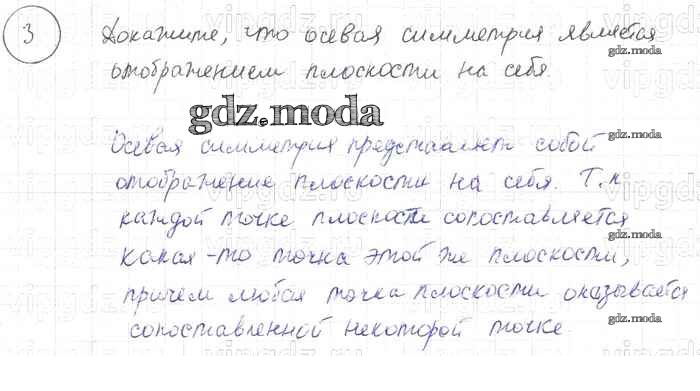 3 Докажите, что осевая симметрия является
gdz.moda
отображением плоскости на себя.
gdz.moda
Осевая симметрия представляет собой
gdz.moda
отображение плоскости на себя. Т.к
каждой точке плоскости сопоставляется
gdz.moda
какая-то точка этой же плоскости,
причем любая точка плоскости оказывается
сопоставленной некоторой точке.
gdz.moda